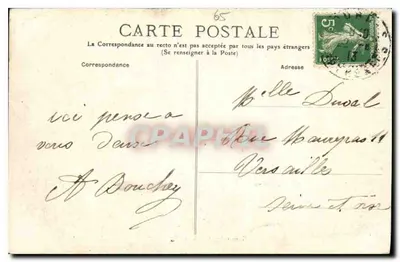 65
CARTE POSTALE
La Correspondance au recto n'est pas acceptée par tous les pays étrangers
(Se renseigner à la Poste)
Correspondance
Adresse
ici pense a
vous deux
A Bouchey
Melle Duval
Rue Maurepas 11
Versailles
Seine et Oise
5